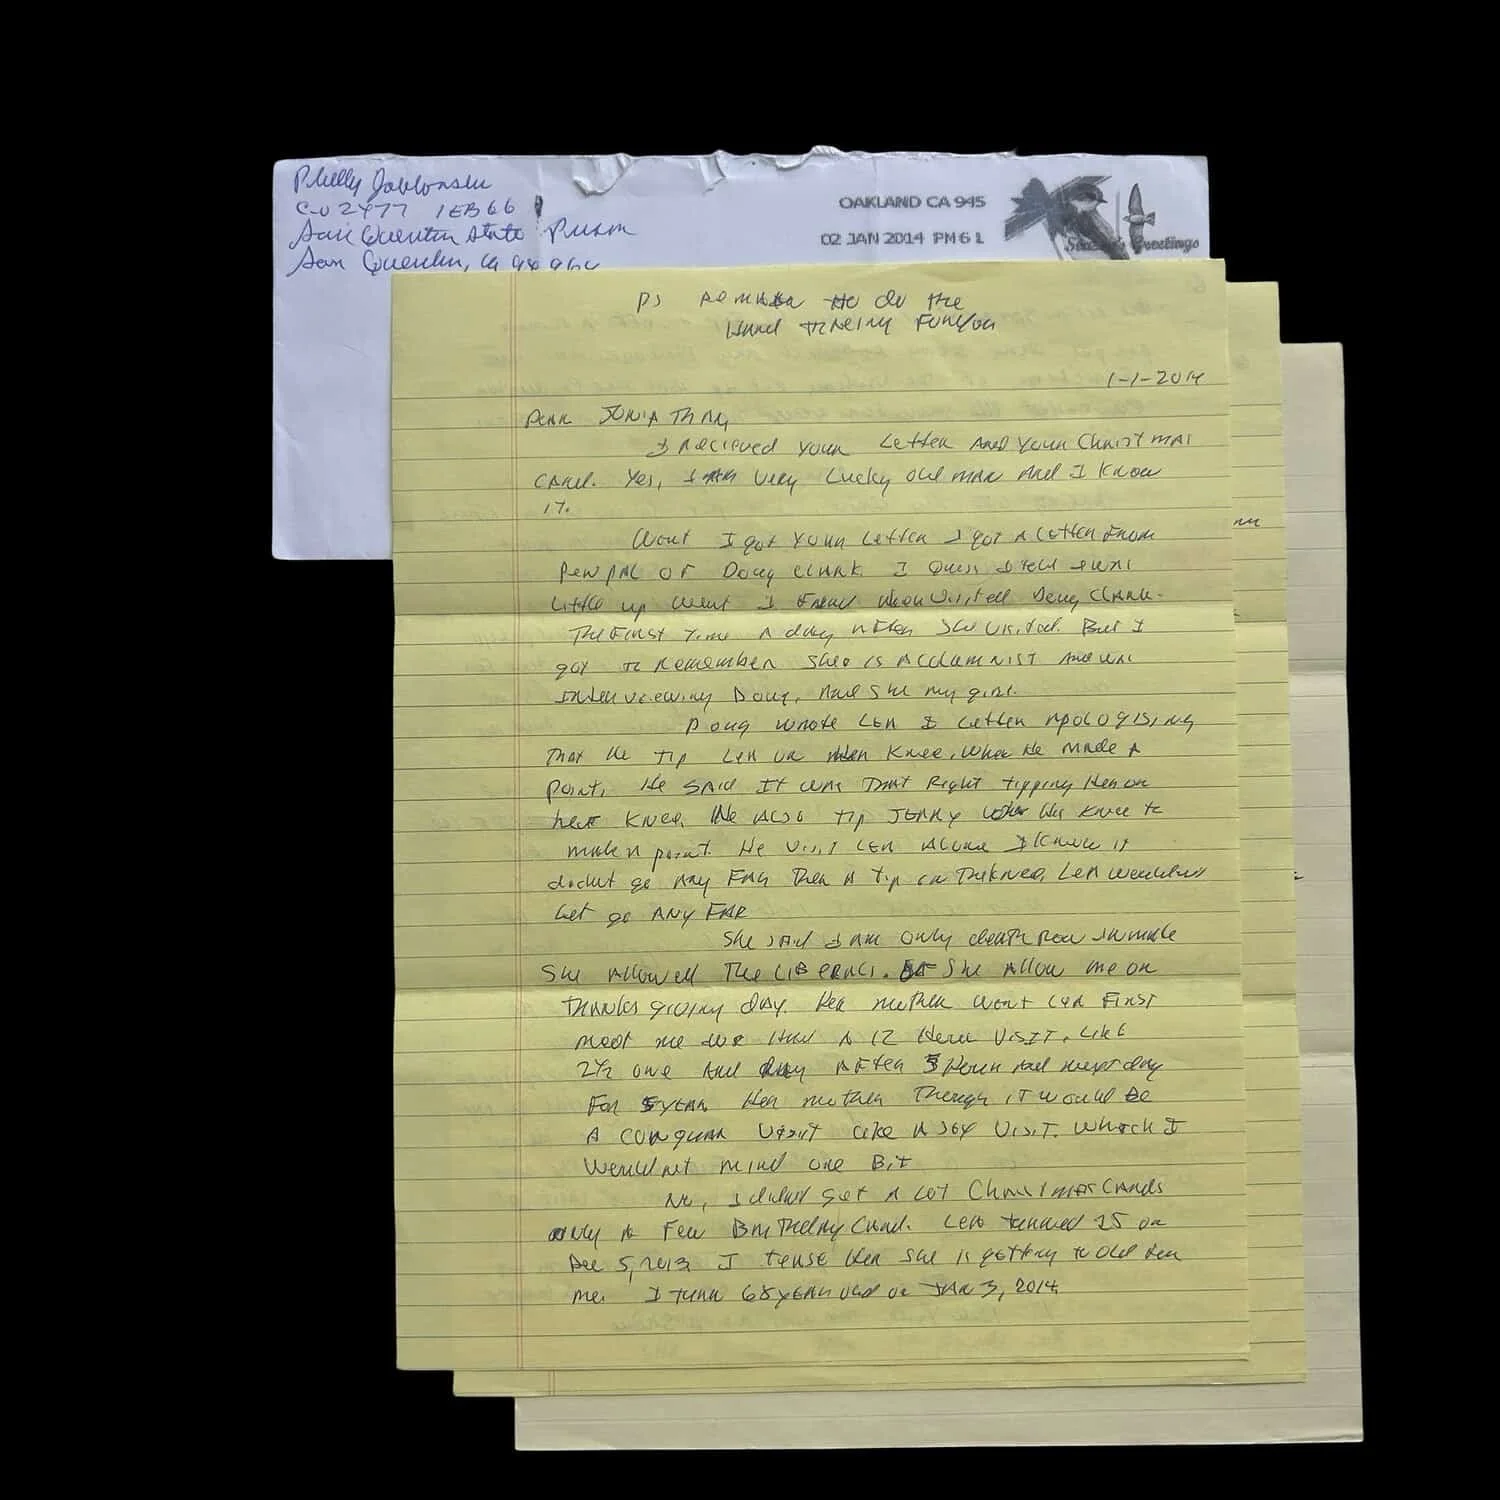 Philly Jablonski
C-02477 1EB66
San Quentin State Prison
San Quentin, CA
OAKLAND CA 945
02 JAN 2014 PM 6 L
Season's Greetings
PS to do the
Hand tracing For you
1-1-2014
Dear JONATHAN,
I Recieved your Letter And your Christmas
Card. Yes, I Am very Lucky old man And I Know
it.
Went I got your Letter I got A Letter From
penpal of Doug Clark. I Guess I
Little up went I when visited Doug Clark.
The First Time A day After She visited. But I
got to Remember She is A Columnist And was
Interviewing Doug, And She my girl.
Doug wrote Lea A Letter Apologising
That he Tip Lea on Her Knee, when he made A
point, He SAid It was That Right tipping Her on
her Knee. He Also tip JERRY his Knee to
make A point. He visit Lea Alone I Know it
didn't go Any FAR Then A Tip on The knee, Lea wouldn't
Let go ANY FAR
She Said I Am only death Row Inmate
She Allowed The LIBERALS. She Allow me on
Thanks giving day. Her mother went Lea First
meet me we Had A 12 Hour VISIT. Like
2½ one And day AFTER 5 Hour And next day
For 5 YEAR Her mother Though it would Be
A CONjugal Visit Like A Sex Visit. Which I
Would not mind one Bit
No, I didn't get A Lot Christmas Cards
only A Few Birthday Card. Lea turned 25 on
Dec 5, 2013 I tense Her She is getting to old For
me. I turn 68 years old on JAN 3, 2014